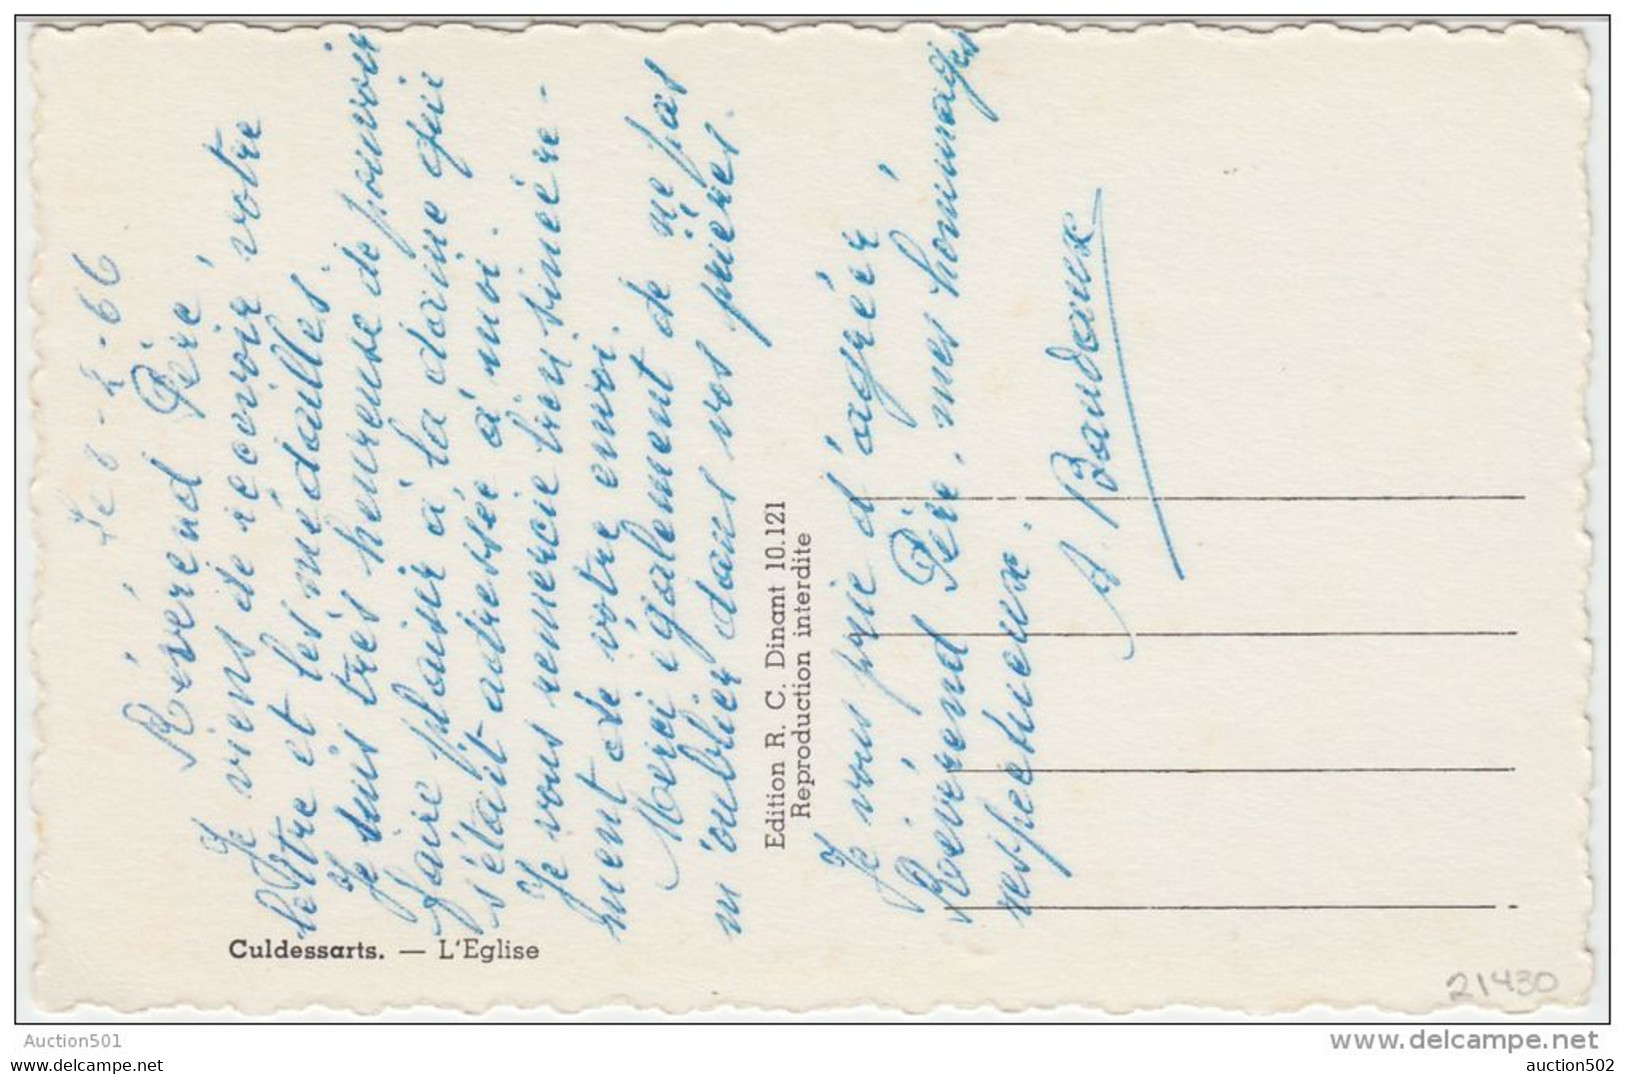 Le 8-2-66
Révérend Père,
Je viens de recevoir votre
lettre et les médailles.
Je suis très heureuse de pouvoir
faire plaisir à la dame qui
s'était adressée à moi.
Je vous remercie bien sincère-
ment de votre envoi.
Merci également de ne pas
m'oublier dans vos prières.
Edition R. C. Dinant 10.121
Reproduction interdite
Je vous prie d'agréer,
Révérend Père, mes hommages
respectueux.
A. Baudaux
Culdessarts. — L'Eglise
21430
Auction501
www.delcampe.net
www.delcampe.net
auction502